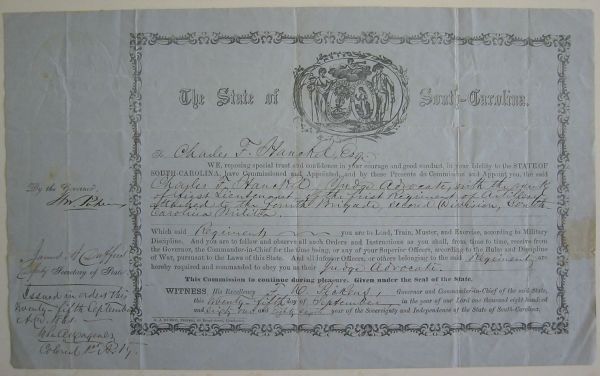 The State of South-Carolina.
To Charles F. Hanckel, Esq.
WE, reposing special trust and confidence in your courage and good conduct, in your fidelity to the STATE OF
SOUTH CAROLINA, have Commissioned and Appointed, and by these Presents do Commission and Appoint you, the said
Charles F. Hanckel, Judge Advocate, with the rank
of First Lieutenant, of the First Regiment of Artillery
attached to the Fourth Brigade, Second Division, South
Carolina Militia.
Which said Regiment you are to Lead, Train, Muster, and Exercise, according to Military
Discipline. And you are to follow and observe all such Orders and Instructions as you shall, from time to time, receive from
the Governor, the Commander-in-Chief for the time being, or any of your Superior Officers, according to the Rules and Discipline
of War, pursuant to the Laws of this State. And all inferior Officers, or others belonging to the said Regiment, are
hereby required and commanded to obey you as their Judge Advocate.
This Commission to continue during pleasure. Given under the Seal of the State.
WITNESS His Excellency Governor and Commander-in-Chief of the said State,
this twenty-fifth day of September in the year of our Lord one thousand eight hundred
and Sixty one and eighty sixth year of the Sovereignty and Independence of the State of South-Carolina.
By the Governor,
Secretary of State
Issued in orders this
twenty-fifth September
A.D. 1861
Colonel 1st